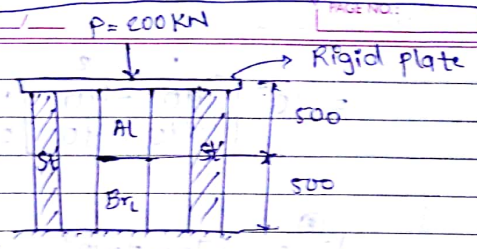 PAGE NO.:
P = 200 KN
Rigid plate
500
Al
St
St
500
Br